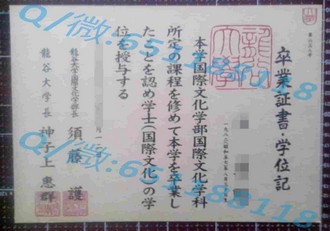 卒業証書・学位記
龍谷大學
本学国際文化学部国際文化学科
所定の課程を修めて本学を卒業し
たことを認め学士(国際文化)の学
位を授与する
龍谷大学国際文化学部長 須藤 護
龍谷大学長 神子上 惠群
Q/微: